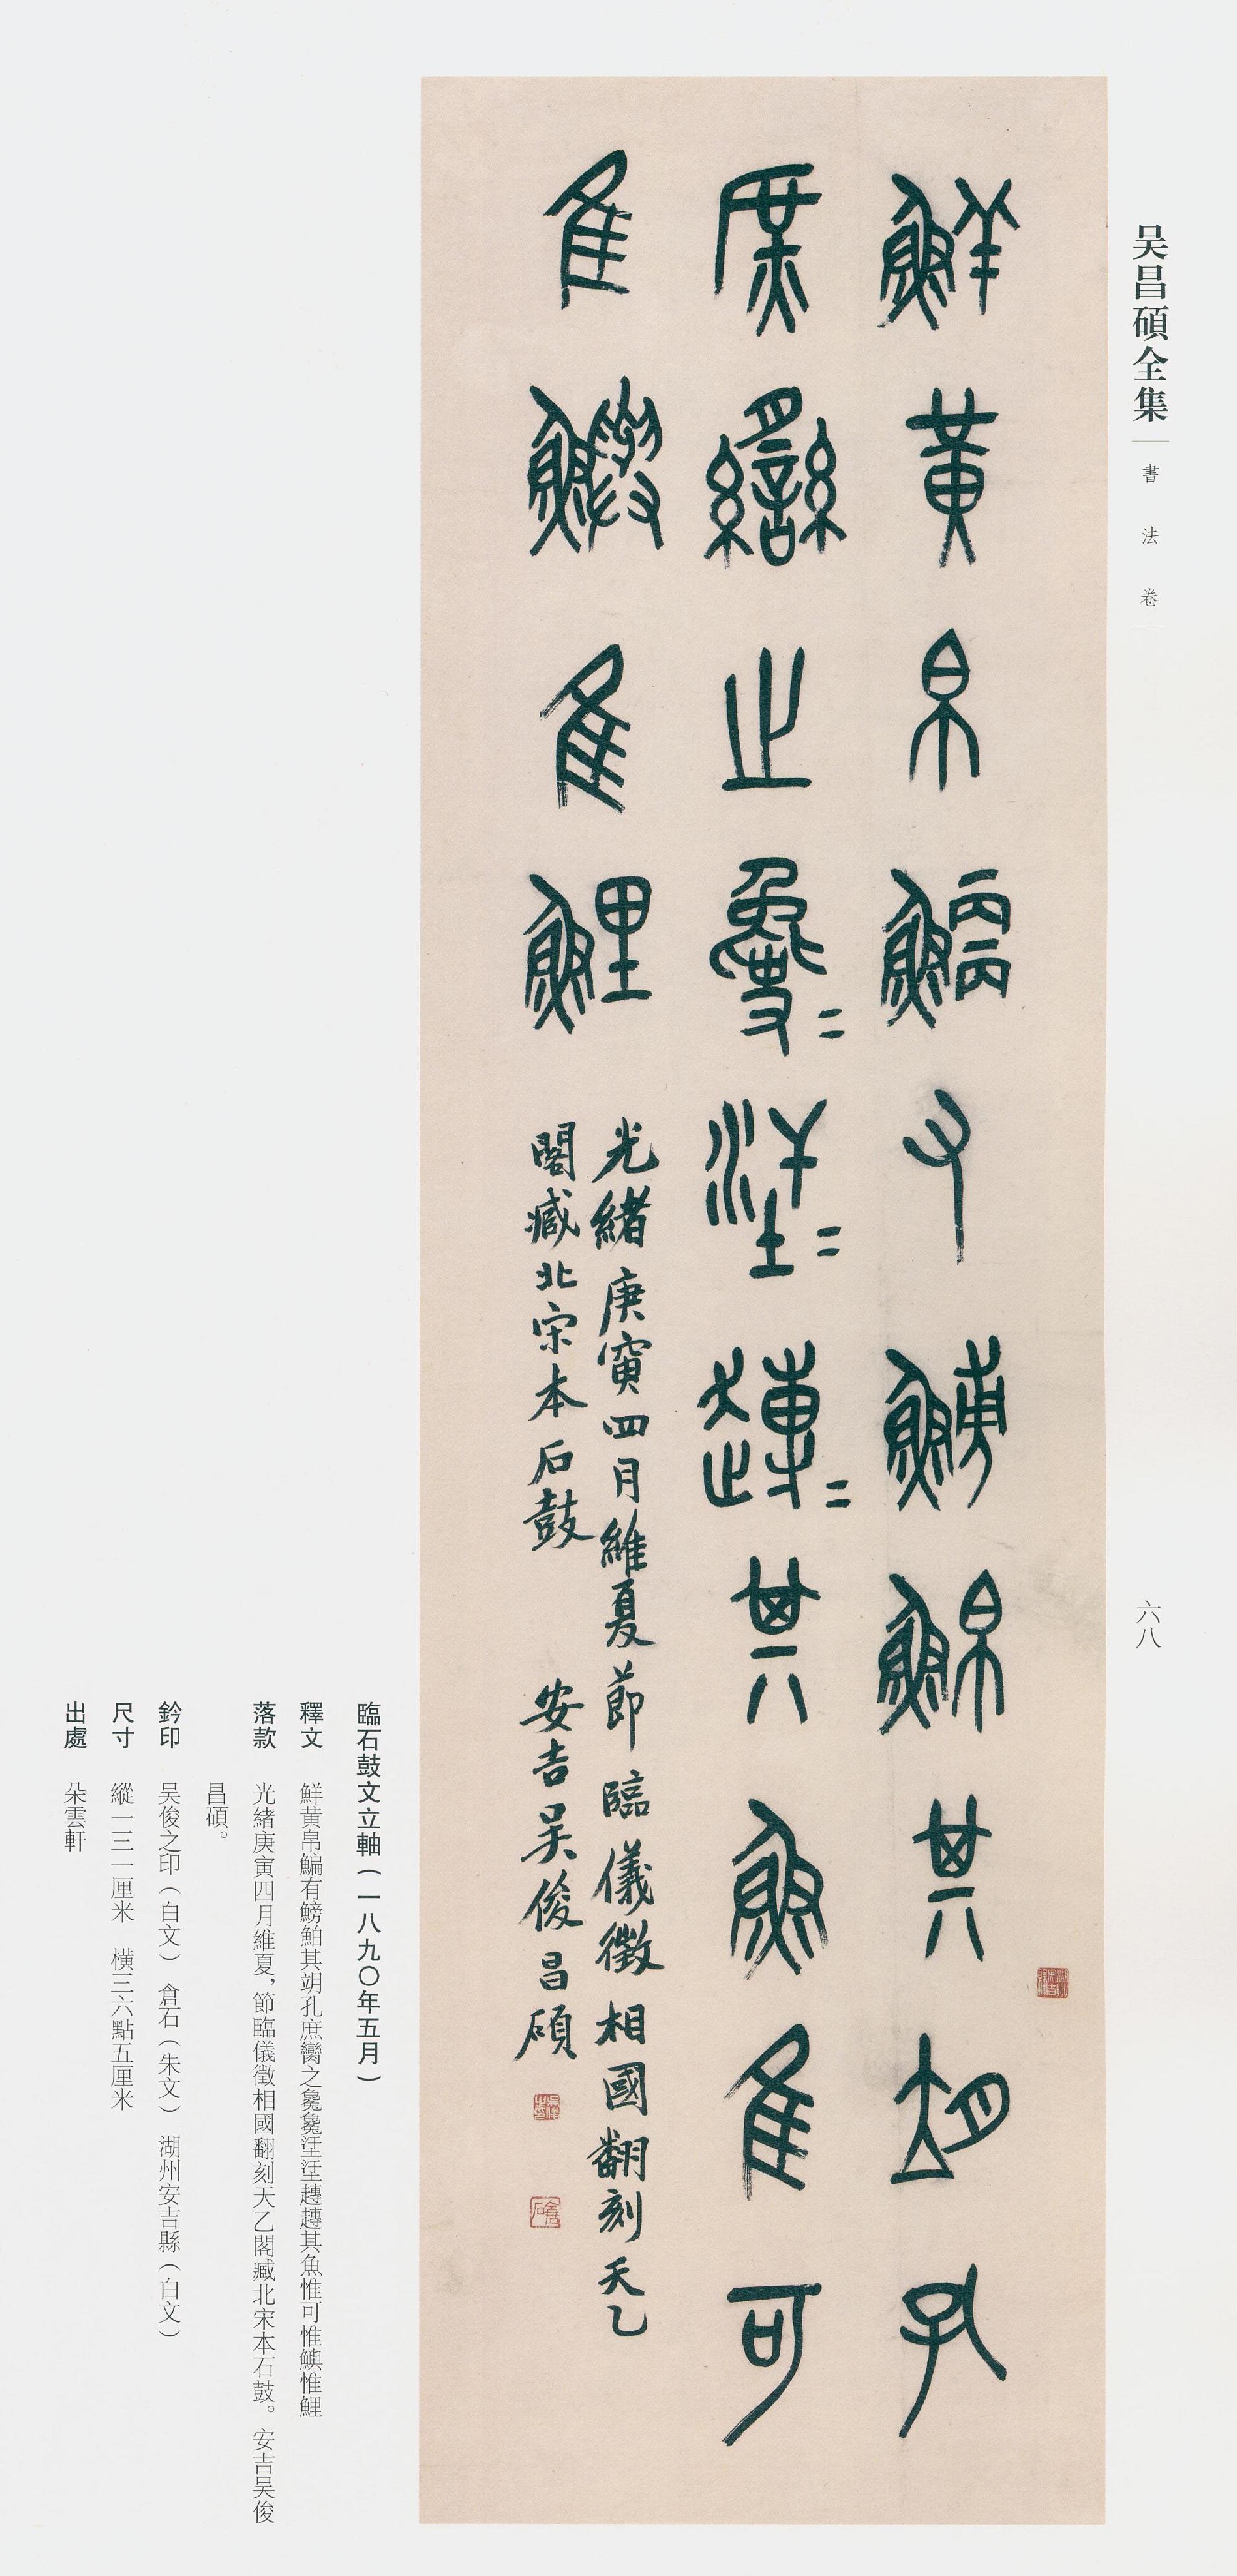 吴昌碩全集
書法卷
六八
鮮黄帛鯾又鱄鮊其朔孔
庶臠之㲋₌汗₌趞₌其魚隹可
隹鱮隹鯉
光緒庚寅四月維夏節臨儀徵相國翻刻天乙
閣臧北宋本石鼓 安吉吴俊昌碩
臨石鼓文立軸(一八九〇年五月)
釋文 鮮黄帛鯿有鰟鮊其朔孔庶臠之毚毚汪汪趞趞其魚惟可惟鱮惟鯉
落款 光緒庚寅四月維夏,節臨儀徵相國翻刻天乙閣臧北宋本石鼓。安吉吴俊
昌碩。
鈐印 吴俊之印(白文) 倉石(朱文) 湖州安吉縣(白文)
尺寸 縱一三一厘米 横三六點五厘米
出處 朵雲軒